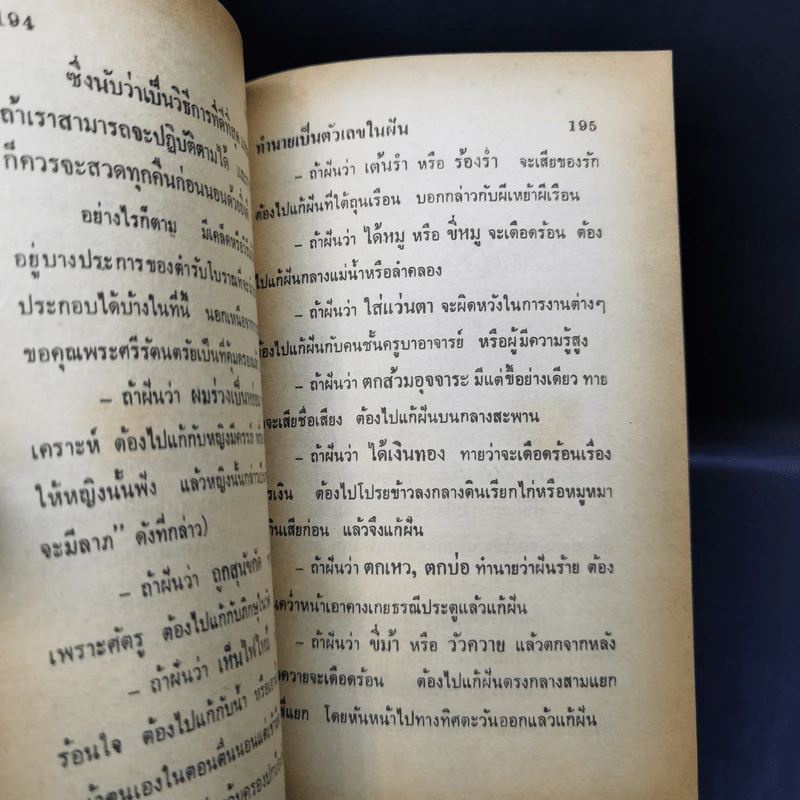 194
ซึ่งนับว่าเป็นวิธีการที่ดีที่สุด
ถ้าเราสามารถจะปฏิบัติตามได้
ก็ควรจะสวดทุกคืนก่อนนอนด้วย
อย่างไรก็ตาม มีเคล็ดหรือวิธี
อยู่บางประการของตำรับโบราณที่จะ
ประกอบได้บ้างในที่นี้ นอกเหนือจาก
ขอคุณพระศรีรัตนตรัยเป็นที่คุ้มครอง
– ถ้าฝันว่า ผมร่วงเป็น
เคราะห์ ต้องไปแก้กับหญิงมีครรภ์
ให้หญิงนั้นฟัง แล้วหญิงนั้นกล่าว
จะมีลาภ” ดังที่กล่าว)
– ถ้าฝันว่า ถูกสุนัขกัด
เพราะศัตรู ต้องไปแก้กับภิกษุ
– ถ้าฝันว่า เห็นไฟไหม้
ร้อนใจ ต้องไปแก้กับน้ำ หรือ
ตนเองในตอนตื่นนอนแต่เช้า
ทำนายเป็นตัวเลขในฝัน 195
– ถ้าฝันว่า เต้นรำ หรือ ร้องรำ จะเสียของรัก
ต้องไปแก้ฝันที่ใต้ถุนเรือน บอกกล่าวกับผีเหย้าผีเรือน
– ถ้าฝันว่า ได้หมู หรือ ขี่หมู จะเดือดร้อน ต้อง
ไปแก้ฝันกลางแม่น้ำหรือลำคลอง
– ถ้าฝันว่า ใส่แว่นตา จะผิดหวังในการงานต่างๆ
ต้องไปแก้ฝันกับคนชั้นครูบาอาจารย์ หรือผู้มีความรู้สูง
– ถ้าฝันว่า ตกส้วมอุจจาระ มีแต่ขี้อย่างเดียว ทาย
จะเสียชื่อเสียง ต้องไปแก้ฝันบนกลางสะพาน
– ถ้าฝันว่า ได้เงินทอง ทายว่าจะเดือดร้อนเรื่อง
รเงิน ต้องไปโปรยข้าวลงกลางดินเรียกไก่หรือหมูหมา
กินเสียก่อน แล้วจึงแก้ฝัน
– ถ้าฝันว่า ตกเหว, ตกบ่อ ทำนายว่าฝันร้าย ต้อง
นคว่ำหน้าเอาคางเกยธรณีประตูแล้วแก้ฝัน
– ถ้าฝันว่า ขี่ม้า หรือ วัวควาย แล้วตกจากหลัง
ควายจะเดือดร้อน ต้องไปแก้ฝันตรงกลางสามแยก
สี่แยก โดยหันหน้าไปทางทิศตะวันออกแล้วแก้ฝัน